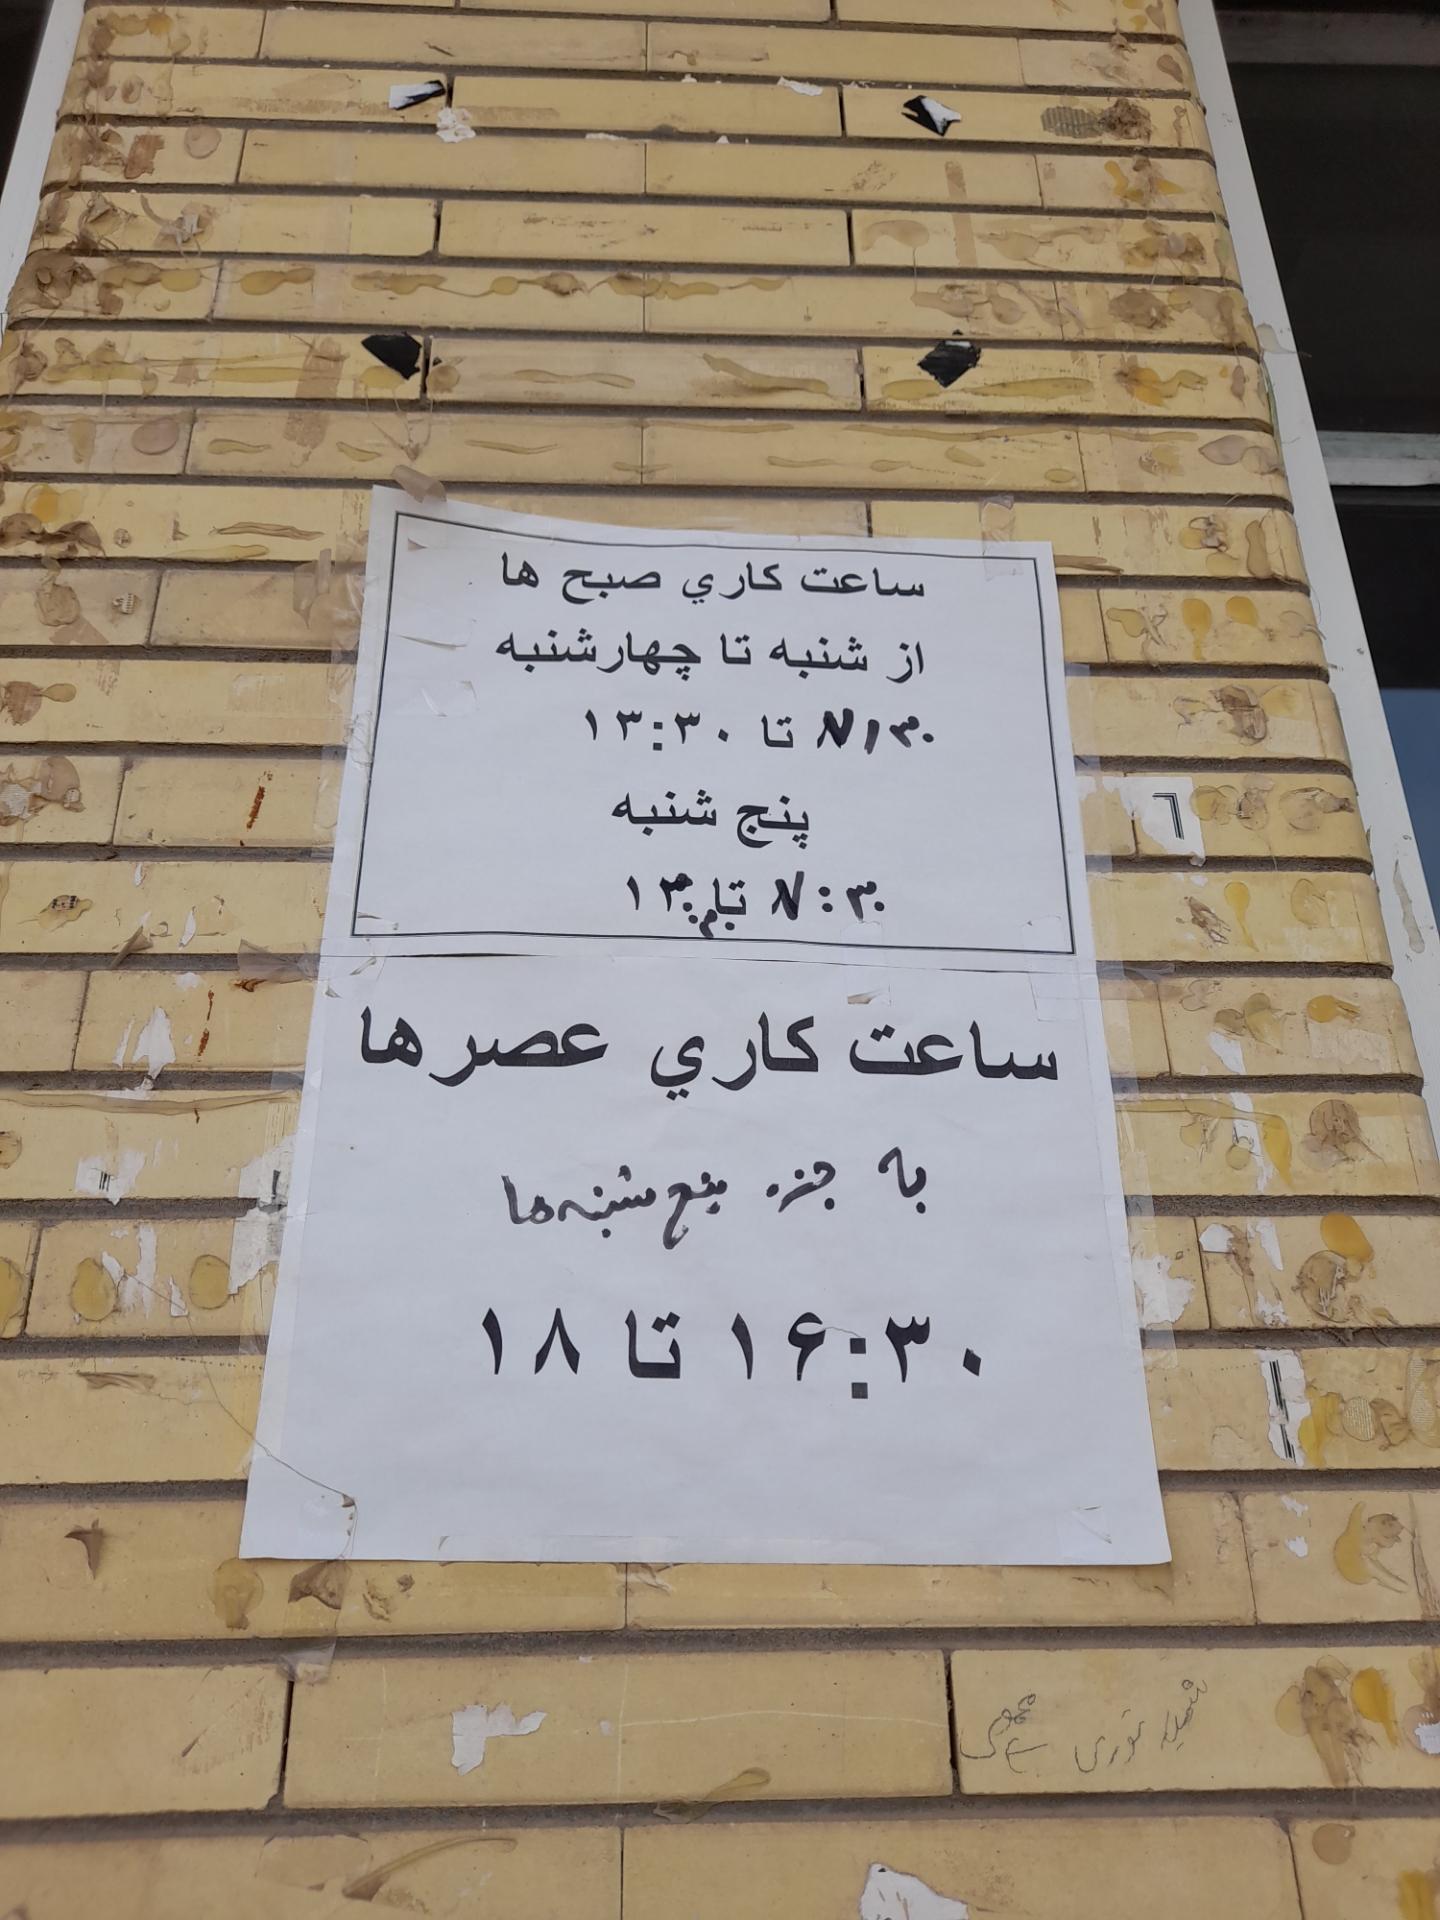 ساعت كاري صبح ها
از شنبه تا چهارشنبه
۷/۳۰ تا ۱۳:۳۰
پنج شنبه
۷:۳۰ تا ۱۳:۳۰
ساعت كاري عصرها
به جزء پنج شنبه ها
۱۶:۳۰ تا ۱۸
نوری